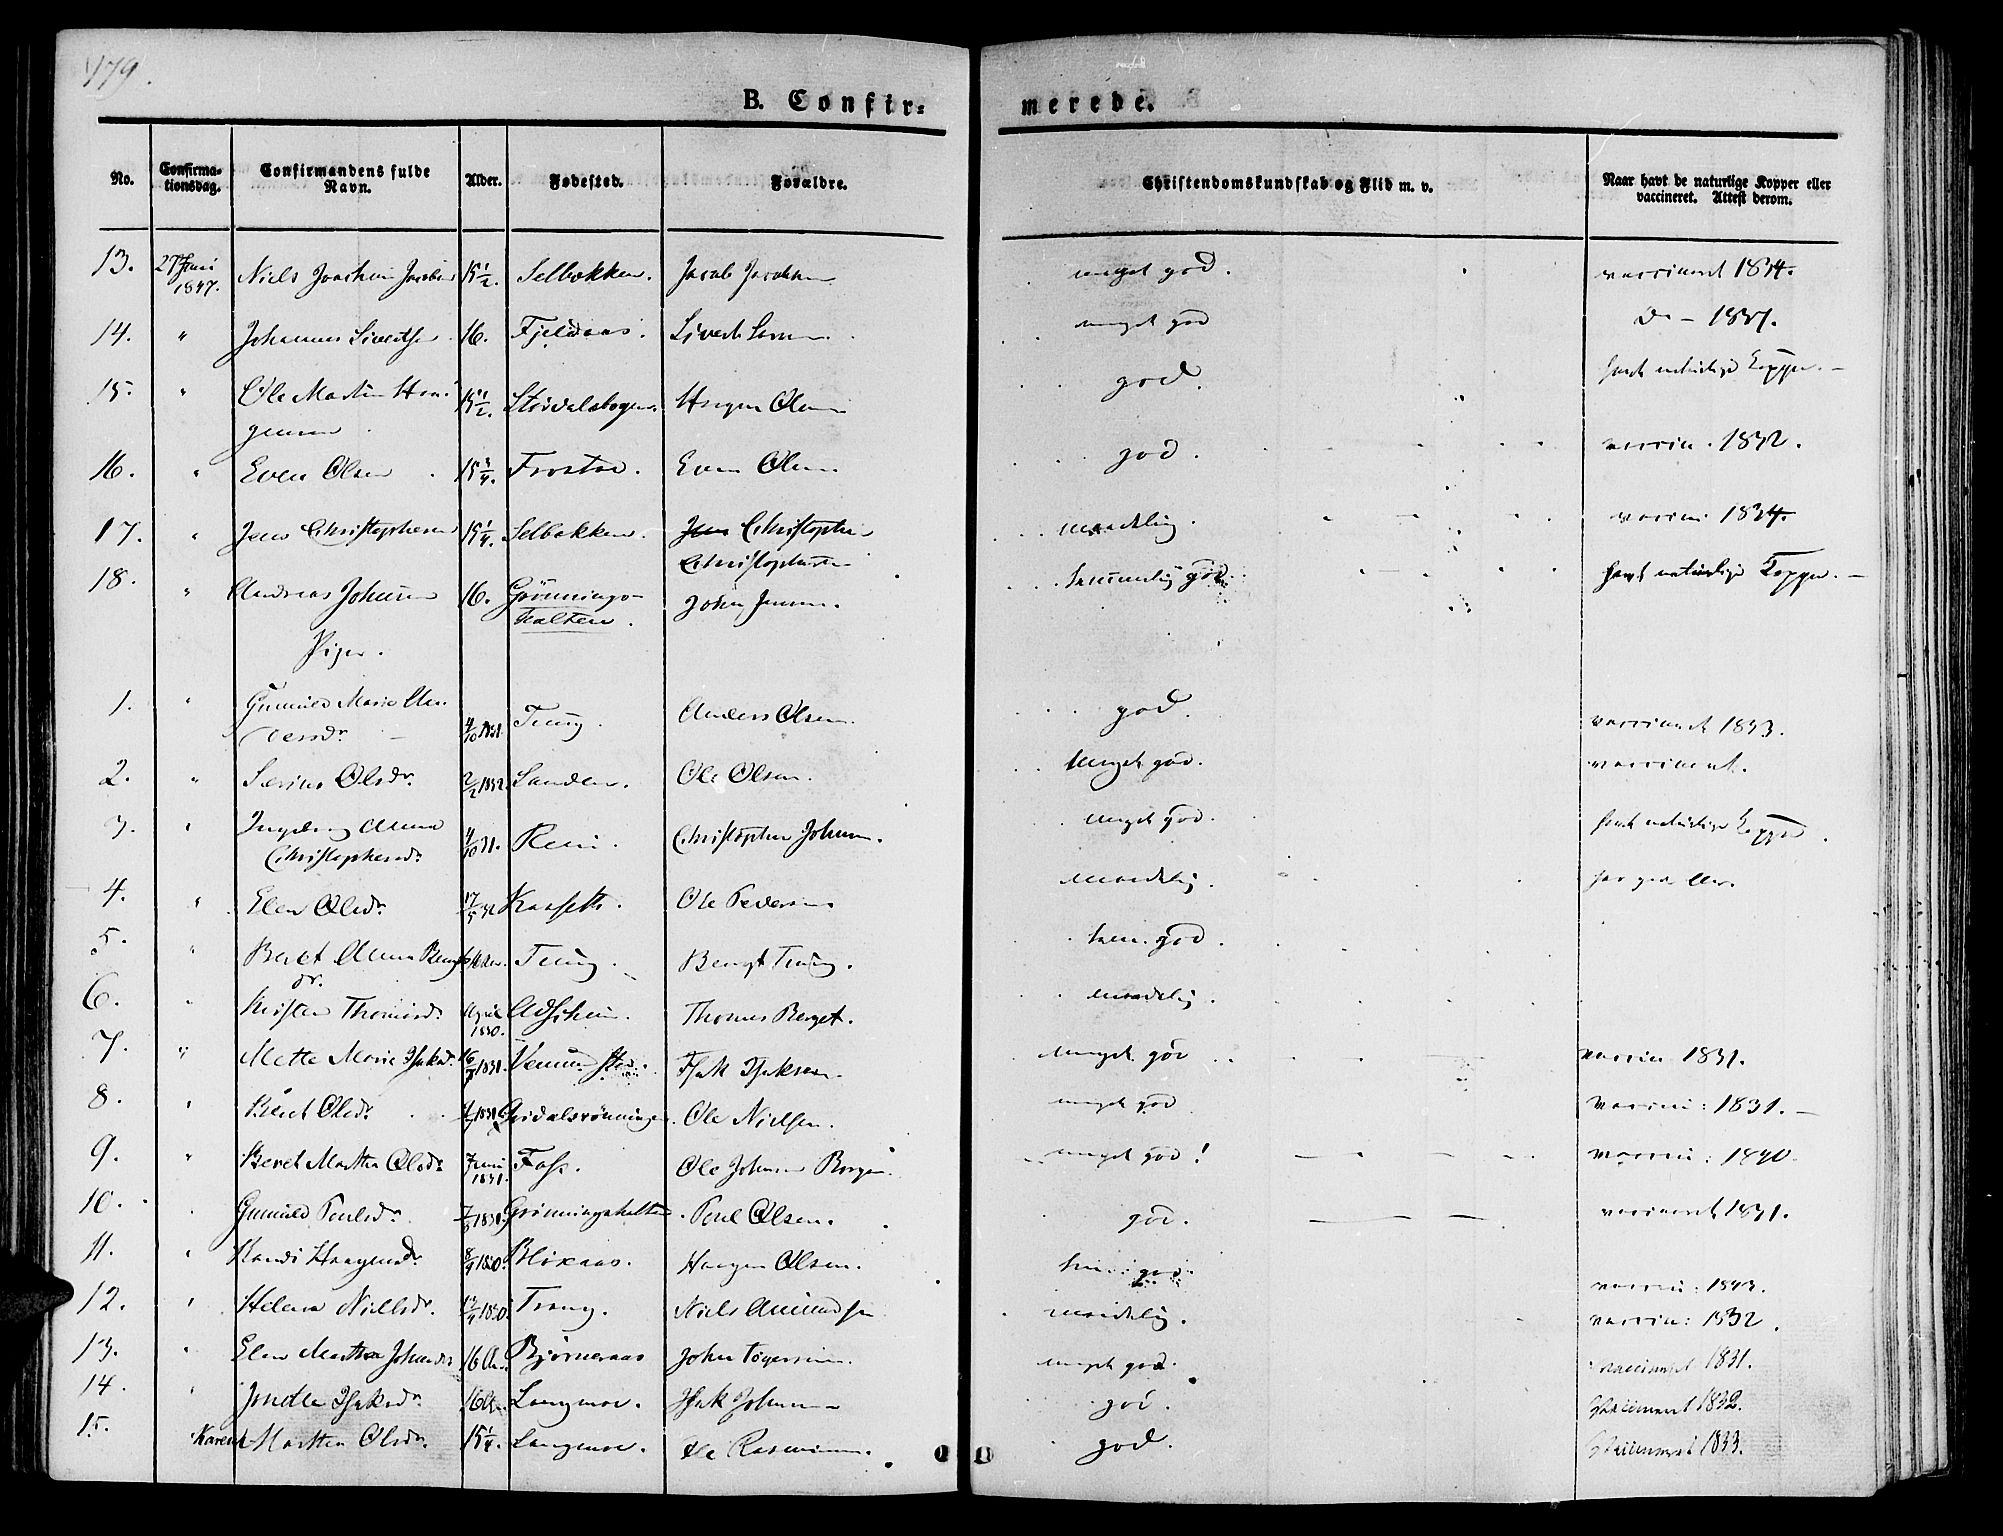 179.
B. Confir=
merede.
No. Confirma-tionsdag. Confirmandens fulde Navn. Alder. Fødested. Forældre. Christendomskundskab og Flid m. v. Naar havt de naturlige Kopper eller vaccineret. Attest derom.
13. 27 Juni 1847. Niels Joachim Jacobsen 15 1/2. Selbækken. Jacob Jacobsen meget god. vaccineret 1834.
14. " Johannes Sivertsen 16. Fjeldaas. Sivert meget god Do - 1837.
15. " Ole Martin Haagensen 15 1/2. Størdalsbogen. Haagen Olsen god. havt naturlige Kopper. -
16. " Even Olsen 15 3/4. Frostad. Even Olsen god. vaccin. 1832.
17. " Jens Christophersen 15 1/4. Selbækken. Jens Christopher Christophersen maadelig. vaccin: 1834.
18. " Andreas Johnsen 16. Grønningshalten. John Jensen. temmelig god. havt naturlige Kopper. -
Piger.
1. " Gunild Marie Andersdr. 4/10 1831. Tung. Anders Olsen. god. vaccineret 1833.
2. " Serine Olsdr. 2/2 1832. Sanden. Ole Olsen. Meget god. vaccineret.
3. " Ingeborg Anna Christophersdr. 4/10 31. Rein. Christopher Johnsen. meget god. havt naturlige Kopper.
4. " Elen Olsdr. 17/5 32 Kaasett. Ole Pedersen maadelig.
5. " Beret Anna Bengtsdr. Tung. Bengt Tung. tem. god.
6. " Kirsten Thomasdr. April 1830. Thomas Berget. maadelig.
7. " Mette Marie Isaksdr. 1831. Isak Isaksen. meget god vaccin 1831.
8. " Beret Olsdr. 1831 Ole Nielsen. meget god vaccin: 1831. -
9. " Beret Martha Olsdr. Juni 1831. Foss. Ole Johnsen Borgen. meget god! vaccin: 1840.
10. " Gunild Poulsdr. 1831. Grønningshalten. Poul Olsen. god. vaccineret 1831.
11. " Randi Haagensdr. 8/9 1830. Bløxaas. Haagen Olsen. god. vaccin: 1843.
12. " Helena Nielsdr. 1830. Trong. Niels Amundsen maadelig. vaccin: 1832.
13. " Elen Martha Johnsdr. 16 Bjørneraas John Tøgersen. meget god. vaccineret 1831.
14. " Isaksdr. 16 Langmoe. Isak Johnsen god. vaccineret 1832.
15. Karen Martha Olsdr. 15 1/4. Langmoe. Ole Rasmussen. god. vaccineret 1833.